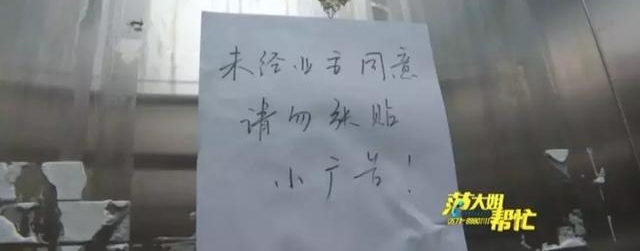 未经业主同意
请勿张贴
小广告!
范大姐
帮忙